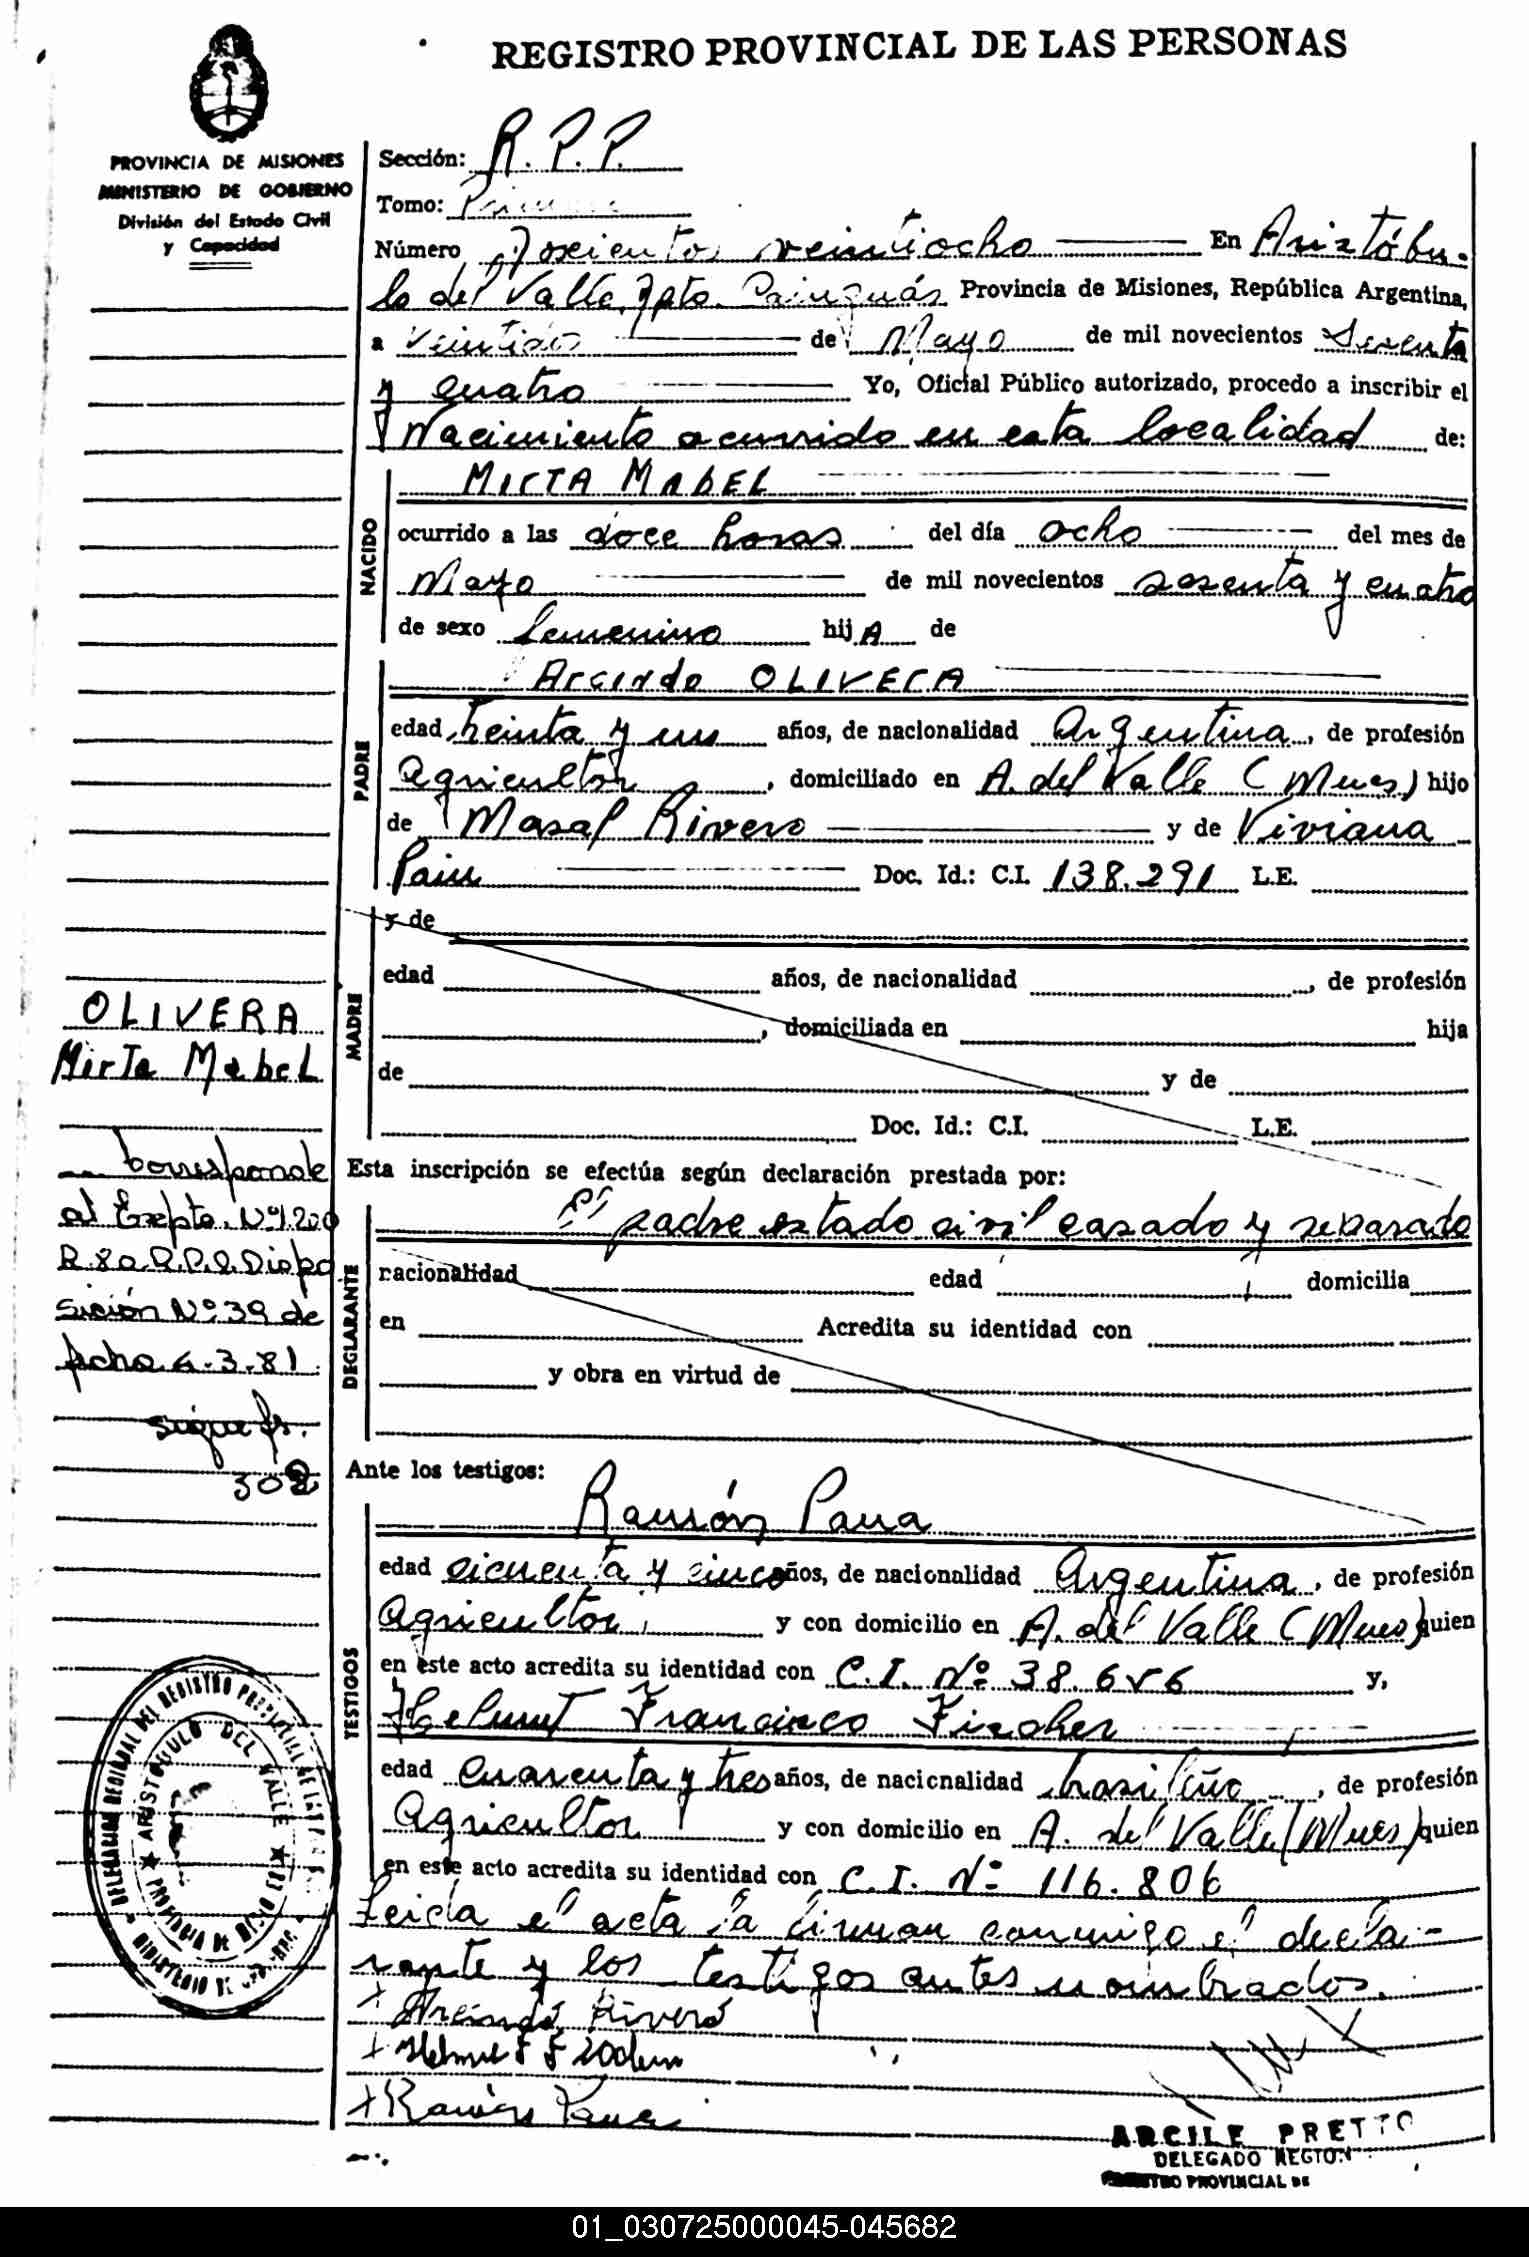 REGISTRO PROVINCIAL DE LAS PERSONAS
PROVINCIA DE MISIONES
MINISTERIO DE GOBIERNO
División del Estado Civil
y Capacidad
Sección: R. P. P.
Tomo:
Número Doscientos veintiocho En Aristóbu-
lo del Valle, Dpto. Cainguás Provincia de Misiones, República Argentina,
a veintidos de Mayo de mil novecientos sesenta
y cuatro Yo, Oficial Público autorizado, procedo a inscribir el
Nacimiento ocurrido en esta localidad de:
NACIDO
MIRTA MABEL
ocurrido a las doce horas del día ocho del mes de
Mayo de mil novecientos sesenta y cuatro
de sexo femenino hijA de
PADRE
Arcindo OLIVERA
edad treinta y un años, de nacionalidad Argentina, de profesión
Agricultor, domiciliado en A. del Valle (Mnes) hijo
de Rivero y de Viviana
Doc. Id.: C.I. 138.291 L.E.
MADRE
y de
edad años, de nacionalidad , de profesión
, domiciliada en hija
de y de
Doc. Id.: C.I. L.E.
OLIVERA
Mirta Mabel
Corresponde
al Expte. Nº
Dispo
sición Nº 39 de
fecha 4.3.81
sigue fs.
302
Esta inscripción se efectúa según declaración prestada por:
DECLARANTE
El padre estado civil casado y separado
nacionalidad edad domicilia
en Acredita su identidad con
y obra en virtud de
Ante los testigos:
TESTIGOS
Ramón
edad cicuenta y cinco años, de nacionalidad Argentina, de profesión
Agricultor y con domicilio en A. del Valle (Mnes) quien
en este acto acredita su identidad con C.I. Nº 38.656 y,
Helmut Francisco Fischer
edad cuarenta y tres años, de nacionalidad brasileño, de profesión
Agricultor y con domicilio en A. del Valle (Mnes) quien
en este acto acredita su identidad con C.I. Nº 116.806
Leida el acta la firman conmigo el decla-
rante y los testigos antes nombrados.
Arcindo Rivero
Ramón
DELEGACION REGIONAL DEL REGISTRO PROVINCIAL DE LAS
ARISTOBULO DEL VALLE
PROVINCIA DE MISIONES
ARCILE PRETTO
DELEGADO REGION
PROVINCIAL DE
01_030725000045-045682